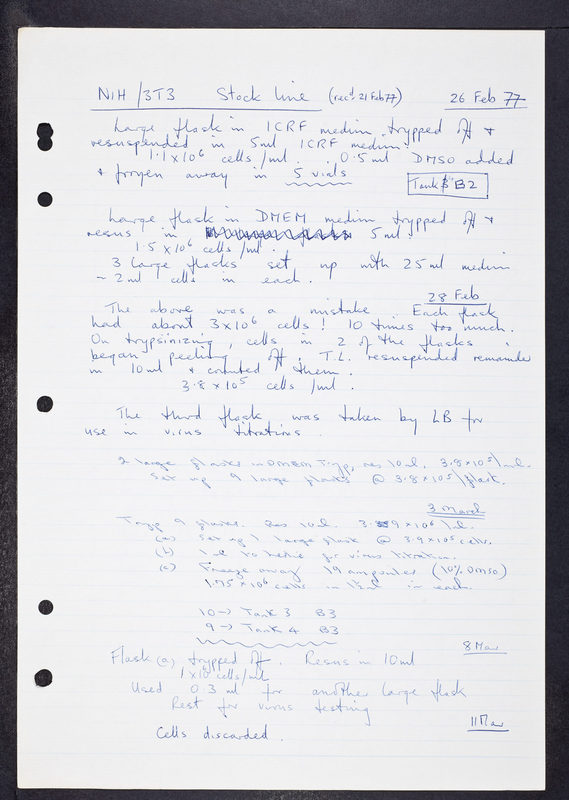 NIH/3T3 Stock line (rec'd 21 Feb 77) 26 Feb 77
Large flask in ICRF medium trypped off +
resuspended in 5ml ICRF medium.
1.1 x 10⁶ cells/ml. 0.5 ml DMSO added
+ frozen away in 5 vials
Tank 3 B2
Large flask in DMEM medium trypped off +
resus in 5 ml.
1.5 x 10⁶ cells/ml.
3 large flasks set up with 25 ml medium
~ 2ml cells in each.
28 Feb
The above was a mistake Each flask
had about 3x10⁶ cells! 10 times too much.
On trypsinizing, cells in 2 of the flasks
began peeling off. T.L. resuspended remainder
in 10 ml + counted them.
3.8 x 10⁵ cells/ml.
The third flask was taken by LB for
use in virus titrations.
2 large flasks in DMEM Tryp, res 10ml. 3.8x10⁵/ml.
Set up 9 large flasks @ 3.8x10⁵/flask.
3 March
Tryp 9 flasks. Res 10ml. 3.9x10⁶/ml.
(a) Set up 1 large flask @ 3.9x10⁵ cells.
(b) 1ml to for virus titration.
(c) Freeze away 19 ampoules (10% DMSO)
1.75 x 10⁶ cells in in each.
10 → Tank 3 B3
9 → Tank 4 B3
8 Mar
Flask (a) trypped off. Resus in 10ml
1x10⁶ cells/ml
Used 0.3 ml for another large flask
Rest for virus testing
11 Mar
Cells discarded.